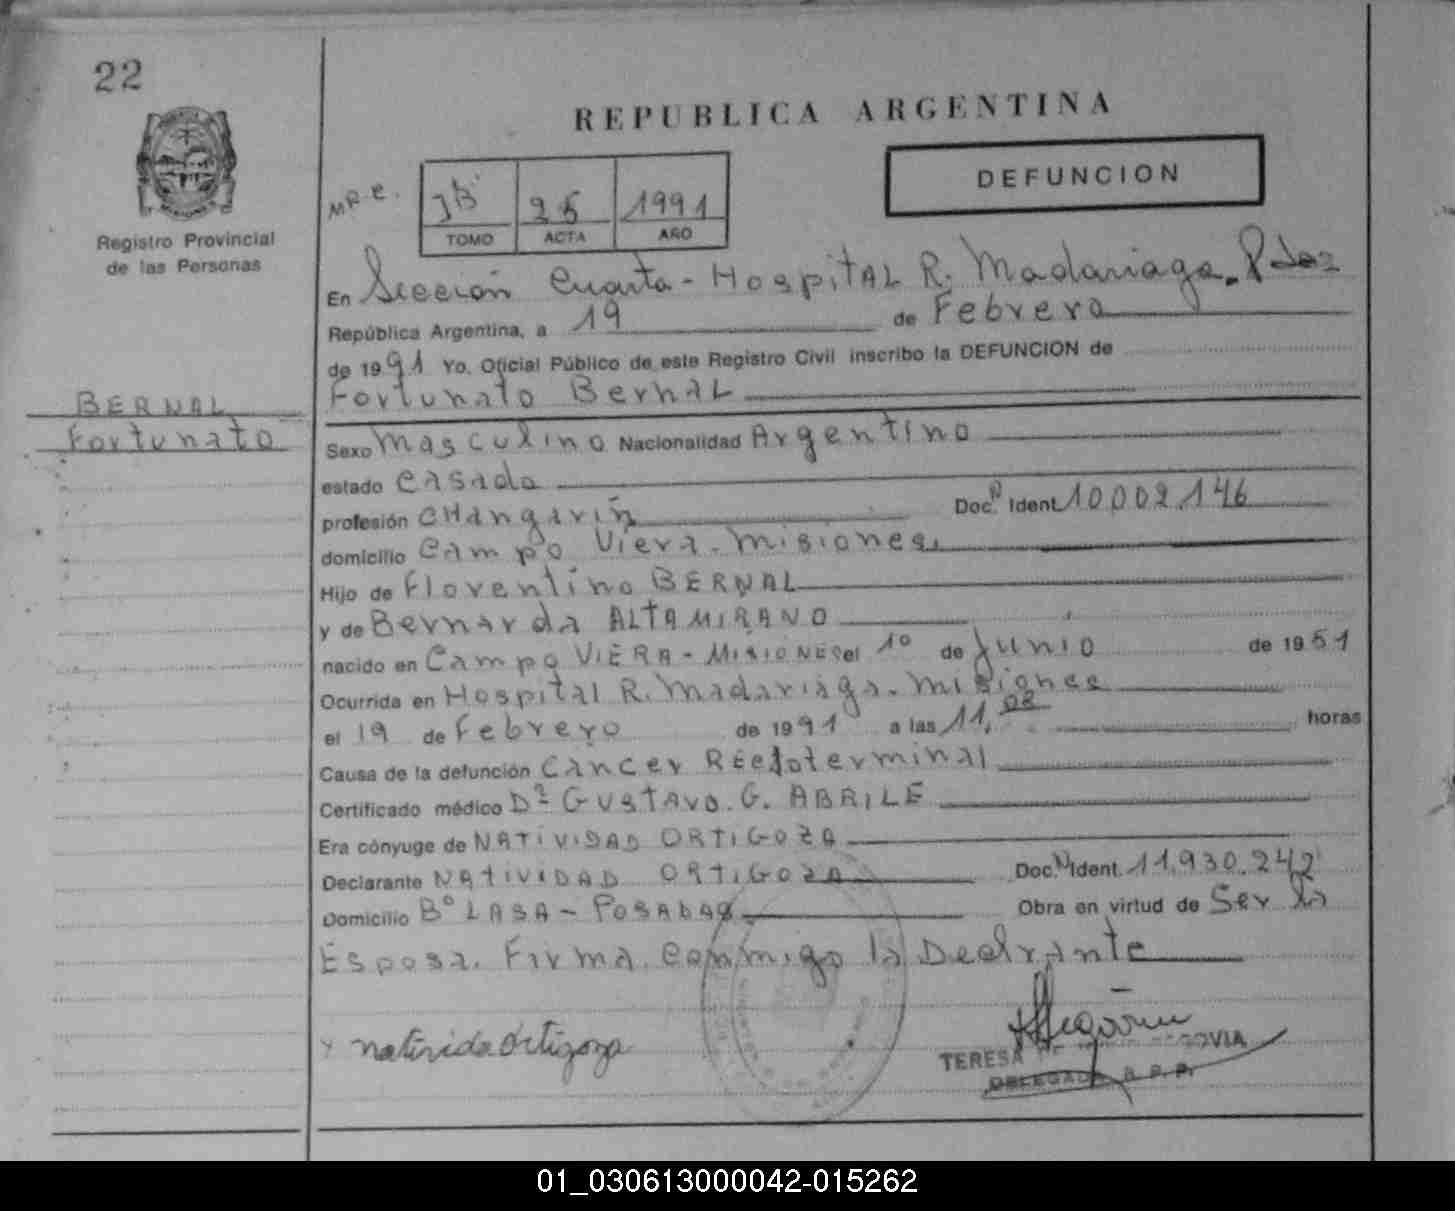 22
REPUBLICA ARGENTINA
DEFUNCION
Registro Provincial
de las Personas
M.R.C.
1991
TOMO ACTA AÑO
En Sección Cuarta - Hospital R. Madariaga. Pdas
República Argentina, a 19 de Febrero
de 1991 Yo, Oficial Público de este Registro Civil inscribo la DEFUNCION de
Fortunato Bernal
BERNAL
Fortunato
Sexo Masculino Nacionalidad Argentino
estado Casado
profesión CHangarín Doc. N Ident. 10.002.146
domicilio Campo Viera. Misiones.
Hijo de Florentino BERNAL
y de Bernarda ALTAMIRANO
nacido en Campo VIERA - MISIONES el 1º de Junio de 1951
Ocurrida en Hospital R. Madariaga. Misiones
el 19 de Febrero de 1991 a las 11, horas
Causa de la defunción Cancer
Certificado médico Dr GUSTAVO. G. ABRILE
Era cónyuge de NATIVIDAD ORTIGOZA
Declarante NATIVIDAD ORTIGOZA Doc. N Ident. 11.930.242
Domicilio Bº LASA - POSADAS Obra en virtud de Ser la
Esposa. Firma conmigo la Declrante
x natirida ortigoza
TERESA DE OVIA
DELEGADA R. P. P.
01_030613000042-015262